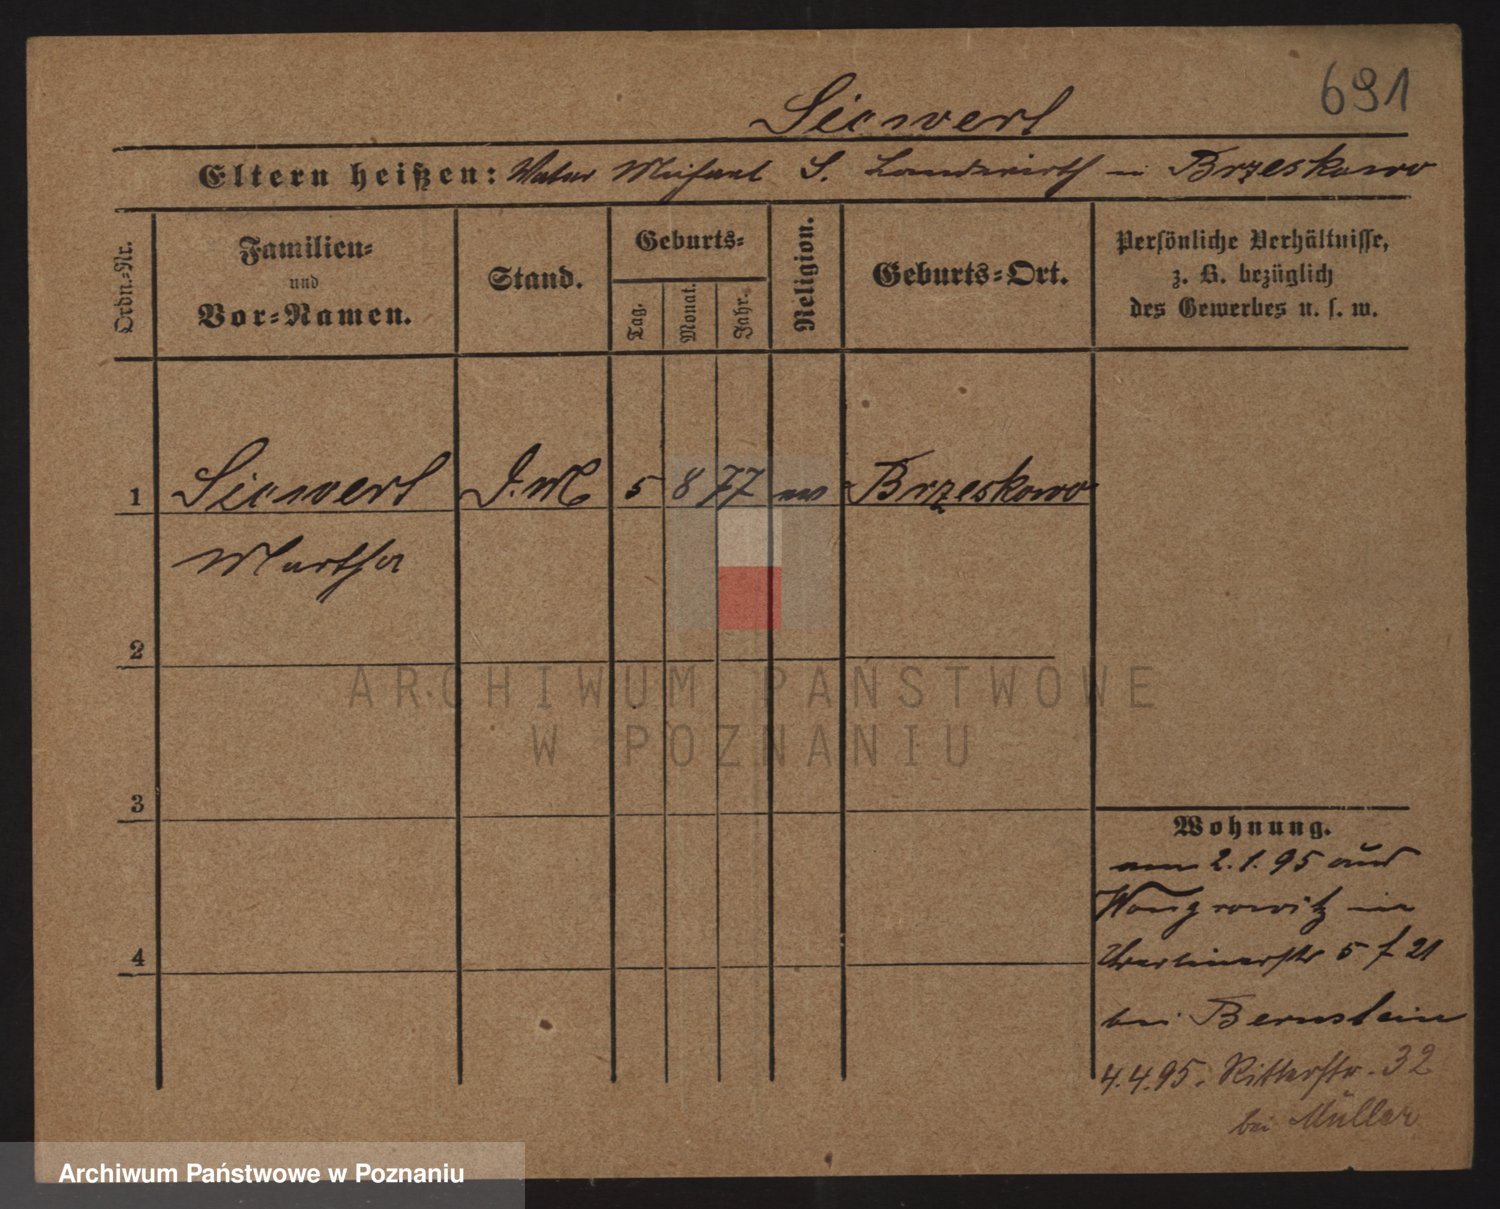 691
Siewert
Eltern heißen: Vater Michael S. Landwirth in Brzeskowo
Ordn.-Nr.
Familien-
und
Vor-Namen.
Stand.
Geburts-
Tag.
Monat.
Jahr.
Religion.
Geburts-Ort.
Persönliche Verhältnisse,
z. B. bezüglich
des Gewerbes u. s. w.
1 Siewert D.M. 5 8 77 ev Brzeskowo
Martha
2
3
4
Wohnung.
am 2.1.95 aus
Wongrowitz in
Berlinerstr 5 f 21
bei Bernstein
4.4.95. Ritterstr. 32
bei Müller
ARCHIWUM PAŃSTWOWE
W POZNANIU
Archiwum Państwowe w Poznaniu